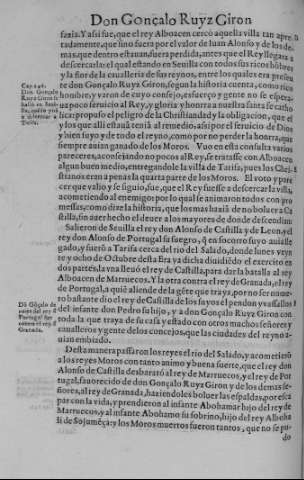 Don Gonçalo Ruyz Giron
fazia. Y assi fue, que el rey Alboacen cercò aquella villa tan apre-
tadamente, que sino fuera por el valor de Iuan Alonso y de los de-
mas que dentro estauan, fuera perdida, antes que el Rey llegara a
descercarla: el qual estando en Seuilla con todos sus ricos hõbres
y la flor de la caualleria de sus reynos, entre los quales era presen
te don Gonçalo Ruyz Giron, segun la historia cuenta, como rico
hombre, y varon de cuyo consejo, esfuerço y gente no se espera-
ua poco seruicio al Rey, y gloria y honrra a nuestra santa fe catho
lica: propuso el peligro de la Christiandad y la obligacion, que el
y los que alli estauã teniã al remedio, assi por el seruicio de Dios
y bien suyo y de todo el reyno, como por no perder la honrra, que
siempre auian ganado de los Moros. Vuo en esta consulta varios
pareceres, aconsejando no pocos al Rey, se tratasse con Alboacen
algun buen medio, entregandole la villa de Tarifa, pues los Chri-
stianos eran a penas la quarta parte de los Moros. El voto y pare
cer que valio y se siguio, fue, que el Rey fuesse a descercar la villa,
acometiendo al enemigo: por lo qual se animaron todos con pro
messas, como dize la historia, que los mas hazia de no boluer a Ca
stilla, sin auer hecho el deuer a los mayores de donde descendian
Salieron de Seuilla el rey don Alonso de Castilla y de Leon, y el
rey don Alonso de Portugal su suegro, q̃ en socorro suyo auia lle
gado, y fuerõ a Tarifa cerca del rio del Salado, donde lunes vayn
te y ocho de Octubre desta Era ya dicha diuidiẽdo el exercito en
dos partes, la vna lleuò el rey de Castilla, para dar la batalla al rey
Alboacen de Marruecos, Y la otra contra el rey de Granada, el rey
de Portugal, a quiẽ allende de la gẽte que traya, por no ser nume-
ro bastante dio el rey de Castilla de los suyos el pendon y vassallos
del infante don Pedro su hijo, y a don Gonçalo Ruyz Giron con
toda la que traya de su casa y estado con otros muchos señores y
caualleros y gente de los concejos, que las ciudades del reyno a-
uian embiado.
Desta manera passaron los reyes el rio del Salado, y acometierõ
a los reyes Moros con tanto animo y buena suerte, que el rey don
Alonso de Castilla desbaratò al rey de Marruecos, y el rey de Por
tugal, fauorecido de don Gonçalo Ruyz Giron y de los demas se-
ñores, al rey de Granada, haziendoles boluer las espaldas, por esca
par con la vida, y prendieron al infante Abohamar hijo del rey de
Marruecos, y al infante Abohamo su sobrino, hijo del rey Alboha
li de Sojumẽça: y los Moros muertos fueron tantos, que no se pu-
do
Don
Gonçalo
Ruyz Giron se
Tarifa.
Dõ Gõçalo de
Portugal
contra el rey d
Granada.